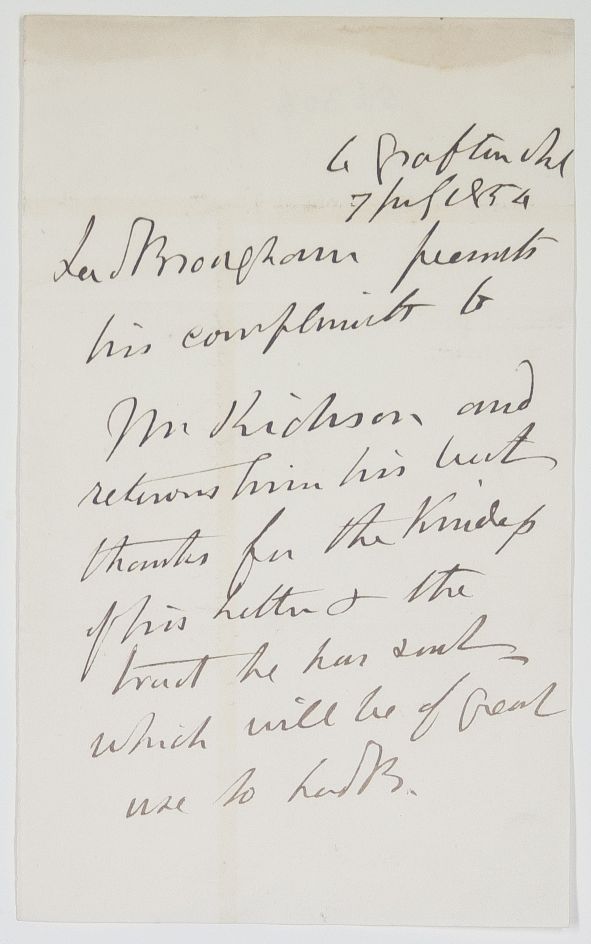 4 Grafton Str
7 July 1854
Lord Brougham presents
his compliments to
Mr Richson and
returns him his best
thanks for the kindness
of his letter & the
tract he has sent
which will be of great
use to Lord B.